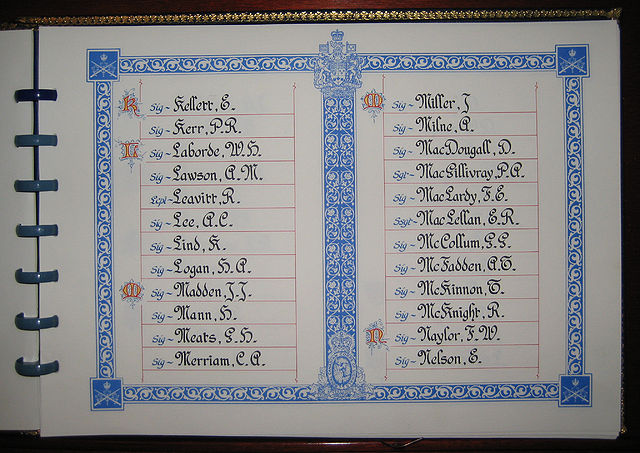 K Sig ~ Kellett, E.
Sig ~ Kerr, P.R.
L Sig ~ Laborde, W.H.
Sig ~ Lawson, A.M.
Lcpl ~ Leavitt, R.
Sig ~ Lee, A.C.
Sig ~ Lind, K.
Sig ~ Logan, H.A.
M Sig ~ Madden, J.J.
Sig ~ Mann, H.
Sig ~ Meats, G.H.
Sig ~ Merriam, C.A.
M Sig ~ Miller, J
Sig ~ Milne, A.
Sig ~ MacDougall, D.
Sgt ~ MacGillivray, P.A.
Sig ~ MacLardy, F.E.
Ssgt ~ MacLellan, E.R.
Sig ~ McCollum, G.G.
Sig ~ McFadden, A.T.
Sig ~ McKinnon, T.
Sig ~ McKnight, R.
N Sig ~ Naylor, F.W.
Sig ~ Nelson, E.